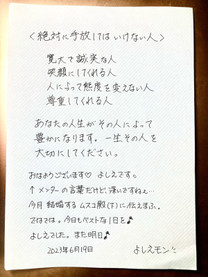 〈絶対に手放してはいけない人〉
寛大で誠実な人
笑顔にしてくれる人
人によって態度を変えない人
尊重してくれる人
あなたの人生がその人によって
豊かになります。一生その人を
大切にしてください。
おはようございます♡ よしえですっ
↑メンターの言葉だけど、深いですね〜
今月 結婚する ムスコ殿(下)に伝えまふ。
ではでは。今日もベストな1日を♪
よしえでした。また明日♪
2023年6月19日
よしえモン